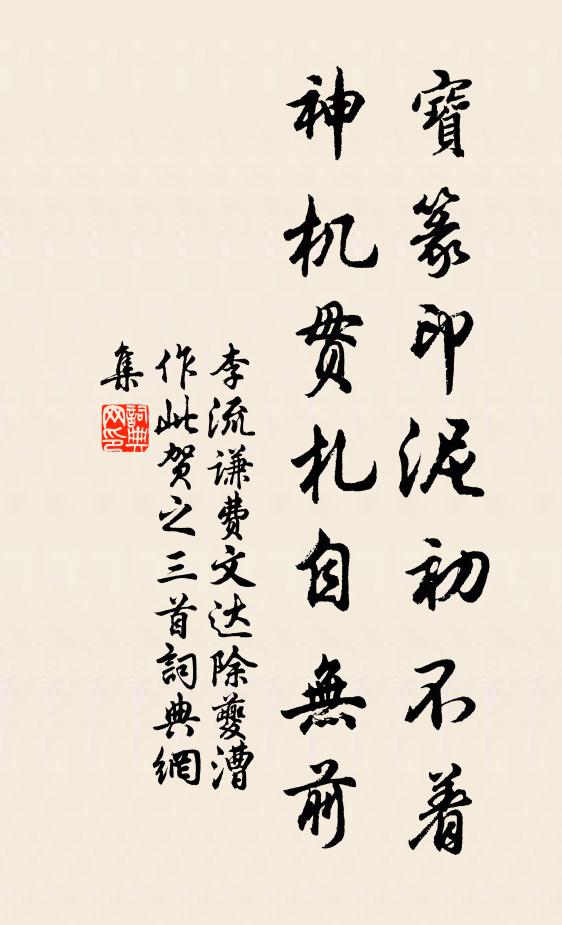 寶篆印泥初不着
神机贯札自無前
李流谦費文达除夔漕
作此贺之三首詞典網
集
詞典網印